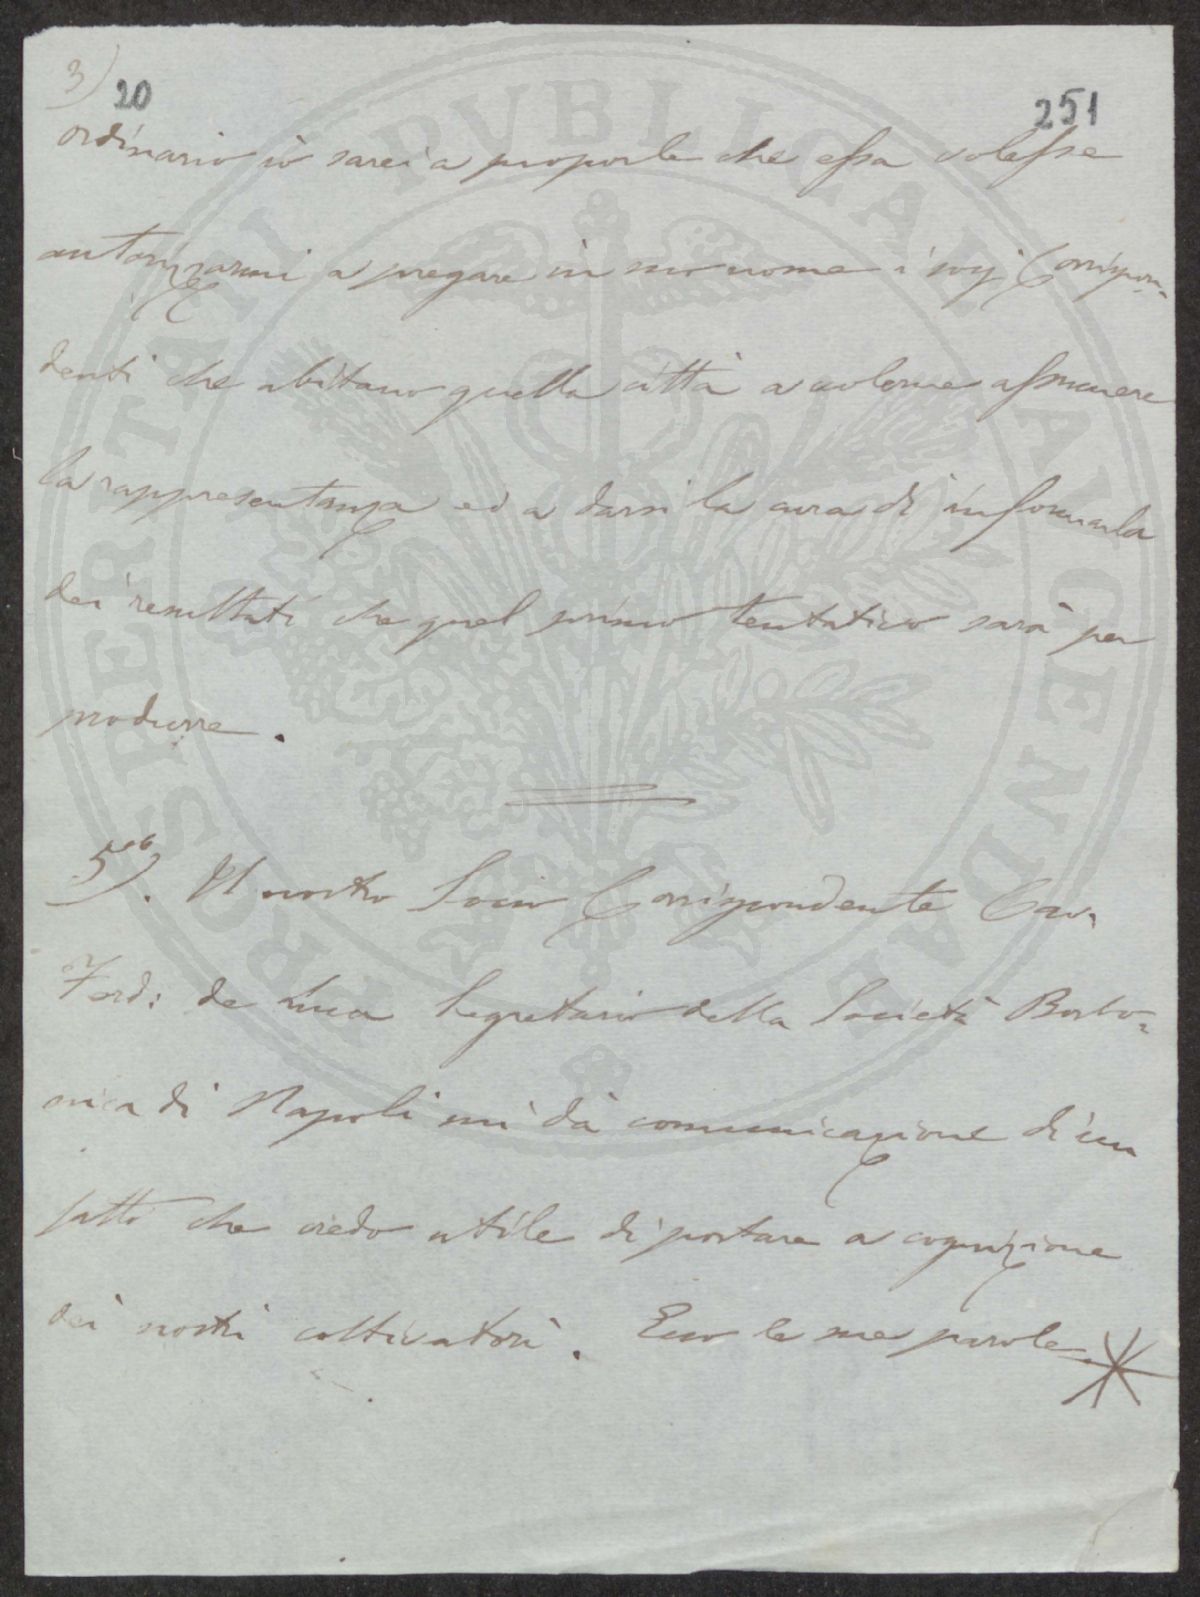 3) 20 251
ordinario io sarei a proporle che essa volesse
autorizzarmi a pregare in suo nome i suoi Corrispon-
denti che abitano quella città a volerne assumere
la rappresentanza ed a darsi la cura di informarla
dei resultati che quel primo tentativo sarà per
produrre.
5º). Il nostro Socio Corrispondente Cav.
Ferd: de Luca Segretario della Società Borbo=
nica di Napoli mi dà comunicazione di un
fatto che credo utile di portare a cognizione
dei nostri coltivatori. Ecco le sue parole
PROSPERITATI PUBLICAE AUGENDAE